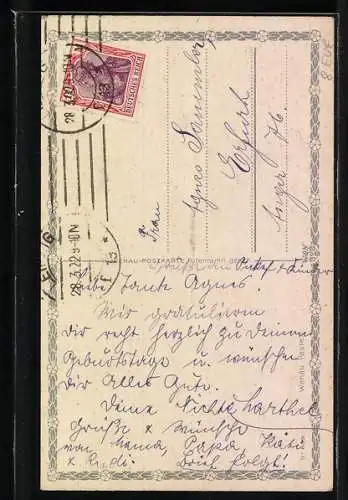 8 EUR
DEUTSCHES REICH
28.3.22.9-10N
Frau
Agnes Sammler
Erfurt
Anger 76.
Liebe Tante Agnes!
Wir gratulieren
dir recht herzlich zu deinem
Geburtstage u. wünschen
dir Alles Gute.
Deine Nichte Barthel
Grüße & Wünsche
von Mama, Papa, Käti
& Rudi. Brief folgt!